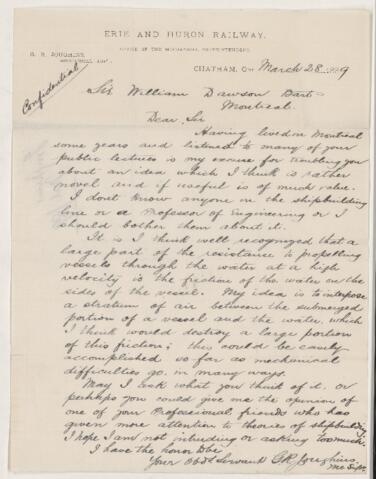 ERIE AND HURON RAILWAY.
OFFICE OF THE MECHANICAL SUPERINTENDENT.
G. R. JOUGHINS,
MECHANICAL SUPT.
CHATHAM, Ont March 28 1889
Confidential
Sir William Dawson Bart
Montreal
Dear Sir
Having lived in Montreal
some years and listened to many of your
public lectures is my excuse for troubling you
about an idea which I think is rather
novel and if useful is of much value.
I dont know anyone in the shipbuilding
line or a Professor of Engineering or I
should bother them about it.
It is I think well recognized that a
large part of the resistance to propelling
vessels through the water at a high
velocity is the friction of the water on the
sides of the vessel. My idea is to interpose
a stratum of air between the submerged
portion of a vessel and the water, which
I think would destroy a large portion
of this friction; this could be easily
accomplished so far as mechanical
difficulties go, in many ways.
May I ask what you think of it, or
perhaps you could give me the opinion of
one of your Professional friends who has
given more attention to theories of shipbuilding.
I hope I am not intruding or asking too much.
I have the honor to be
Your Obdt Servant G R Joughins